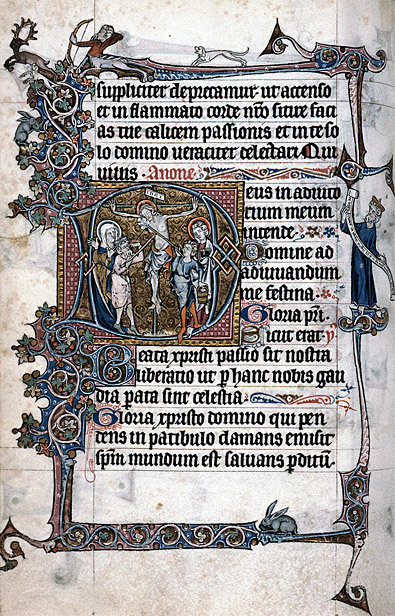 suppliciter deprecamur ut accenso
et inflammato corde nr̄o sitire faci
as tue calicem passionis et in te so
lo domino veraciter delectari. Qui
vivis. A none.
Deus in adiuto
rium meum
intende.
Domine ad
adiuvandum
me festina.
Gloria pri.
Sicut erat. ỹ
Beata xp̄isti passio sit nostra
liberatio ut p hanc nobis gau
dia parata sint celestia.
Gloria xp̄isto domino qui pen
dens in patibulo clamans emisit
sp̄m mundum est salvans p̄ditū.